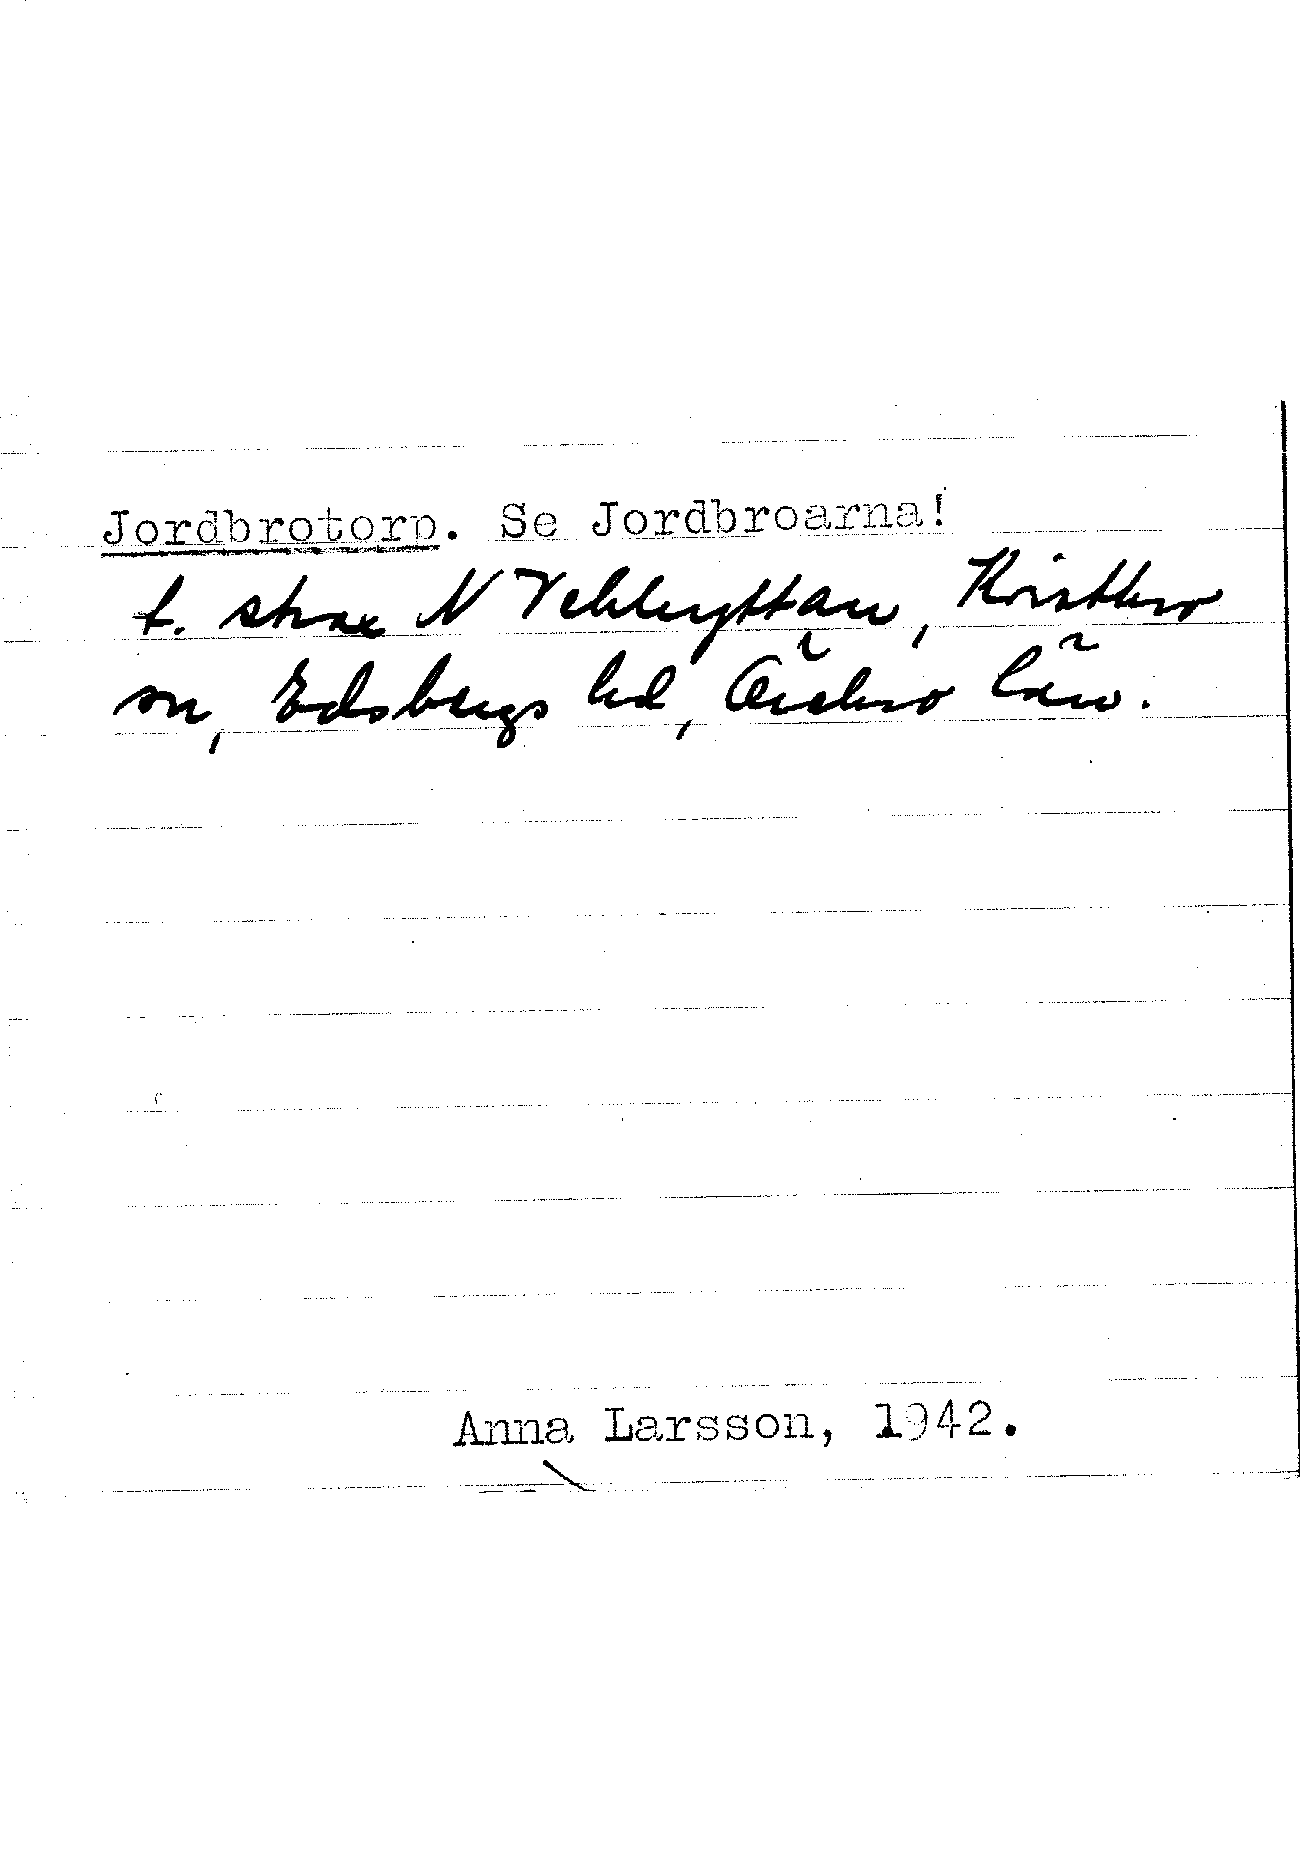 Jordbrotorp. Se Jordbroarna!
t. strax N Vekhyttan, Kvistbro
sn, Edsbergs hd, Örebro län.
Anna Larsson, 1942.